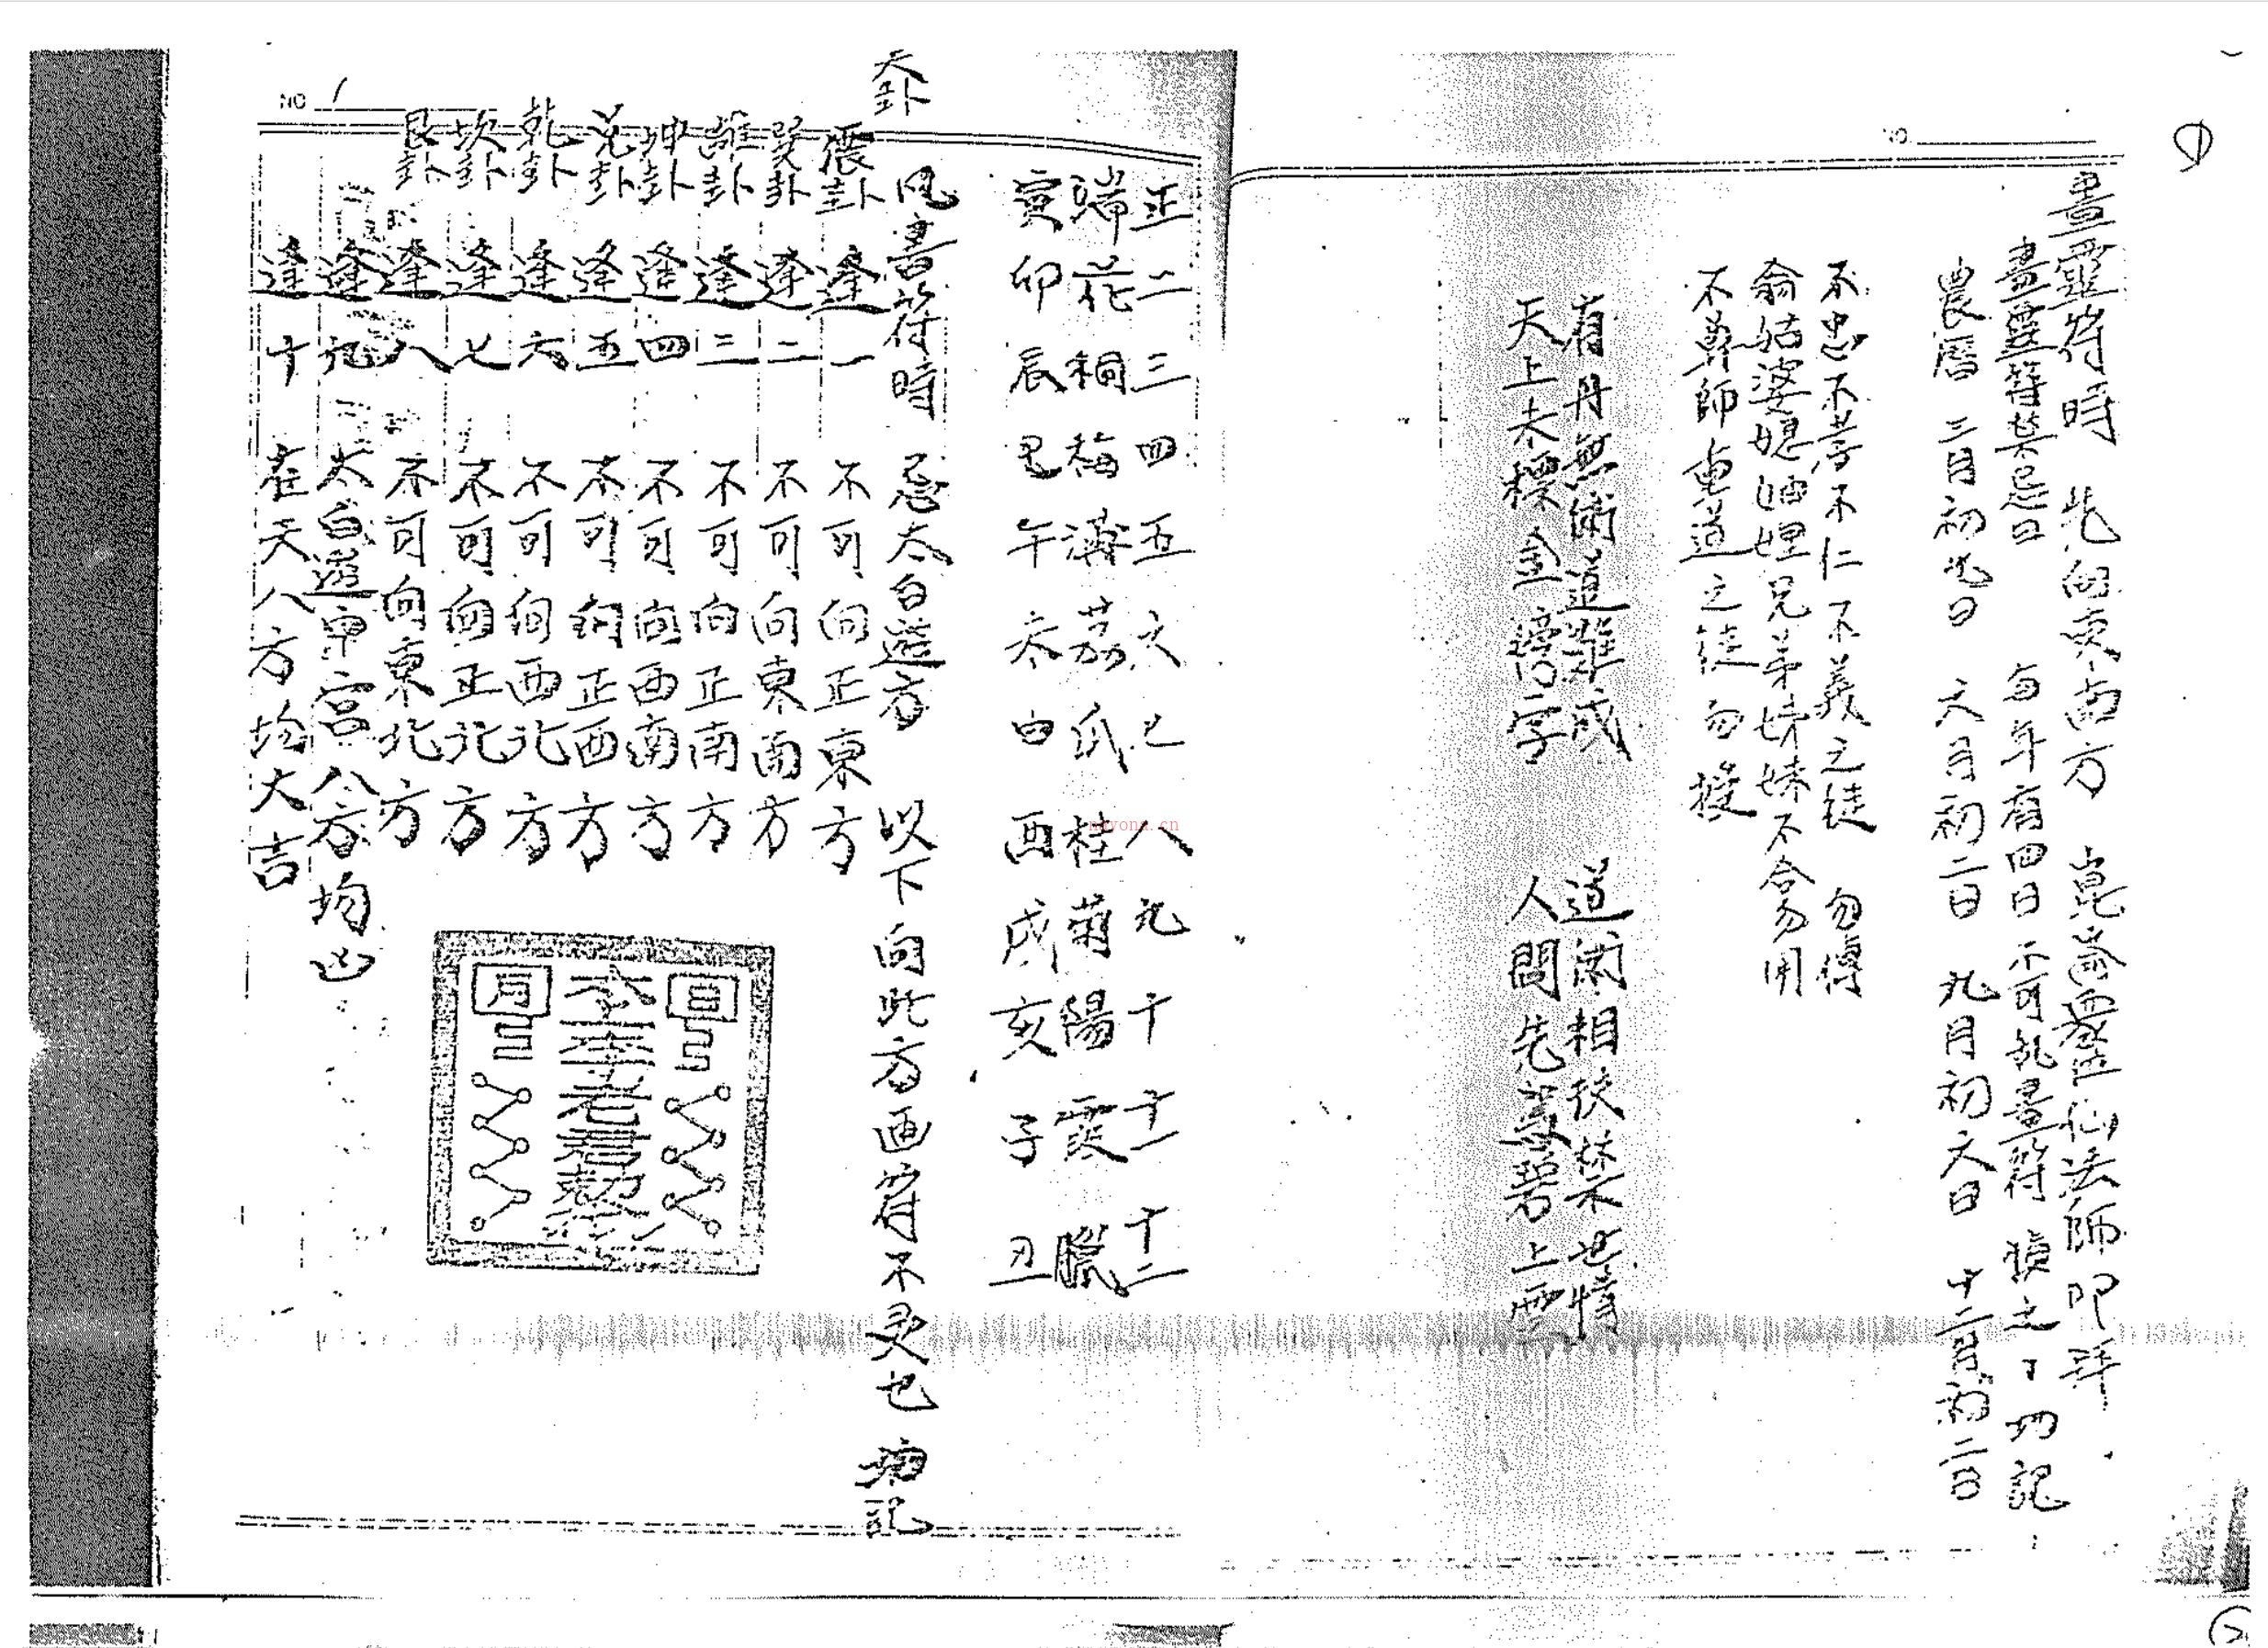 畫靈符時 先向東南方 崑崙眾仙法師叩拜
畫靈符禁忌日 每年有四日不可乱畫符 慎之 切記
農曆 三月初九日 六月初二日 九月初六日 十二月初二日
不忠不孝不仁不義之徒 勿傳
翁姑婆媳妯娌兄弟姊妹不合勿用
不尊師重道之徒勿授
有丹無術道難成 道術相扶禁不世情
天上未標金榜字 人間先寫碧上雲
正二三四五六七八九十十一十二
端花桐梅蒲荔瓜桂菊陽霞臘
寅卯辰巳午未申酉戌亥子丑
天卦
凡書符時 忌太白遊方 以下向此方画符不灵也 切記
震卦 逢一 不可向正東方
巽卦 逢二 不可向東南方
離卦 逢三 不可向正南方
坤卦 逢四 不可向西南方
兑卦 逢五 不可向正西方
乾卦 逢六 不可向西北方
坎卦 逢七 不可向正北方
艮卦 逢八 不可向東北方
逢九 太白遊中宮八方均凶
逢十 在天八方均大吉
日
李老君勅
月
NO 1
NO
nayona.cn